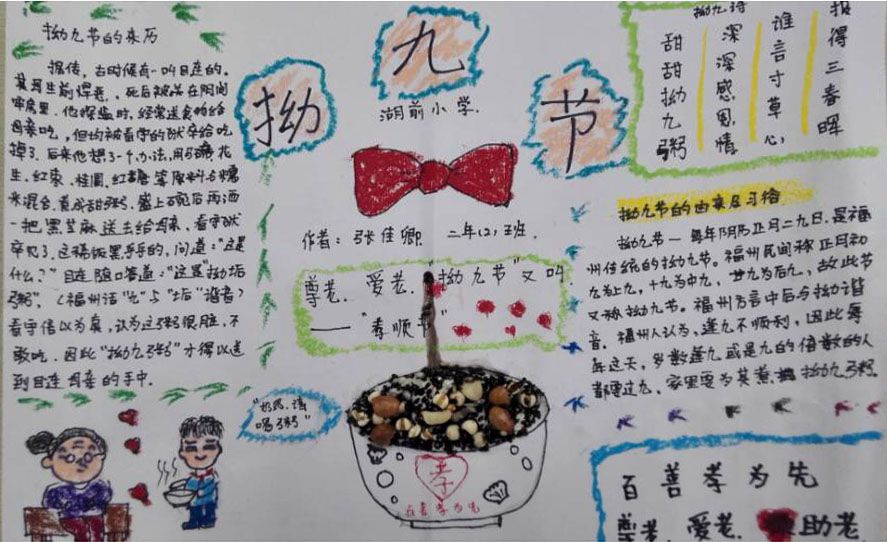 拗九节的来历
据传，古时候有一叫目连的。
其母生前悍恶，死后被关在阴间
牢房里。他探监时，经常送食物给
母亲吃，但均被看守的狱卒给吃
掉了。后来他想了一个办法，用花
生、红枣、桂圆、红糖等原料与糯
米混合，煮成甜粥，盛上碗后再洒
一把黑芝麻送去给母亲，看守狱
卒见了，这稀饭黑乎乎的，问道："这是
什么？"目连随口答道："这是拗垢
粥"，（福州话"九"与"垢"谐音）
看守信以为真，认为这粥很脏，不
敢吃，因此"拗九粥"才得以送
到目连母亲的手中.
拗
九
节
湖前小学.
作者：张佳卿 二年(2)班.
尊老、爱老."拗九节"又叫
——"孝顺节"
"奶奶，请
喝粥"
孝
百善孝为先
拗九诗
甜甜拗九粥
深深感恩情
谁言寸草心
报得三春晖
拗九节的由来及习俗
拗九节—每年阴历正月二九日.是福
州传统的拗九节。福州民间称正月初
九为上九，十九为中九，廿九为后九，故此节
又称拗九节。福州方言中后与拗谐
音。福州人认为，逢九不顺利，因此每
年这天，岁数逢九或是九的倍数的人
都要过九，家里要为其煮拗九粥。
百善孝为先
尊老、爱老、助老